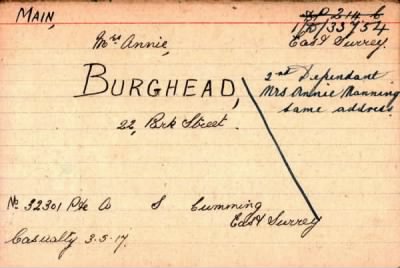 MAIN,
1/D/33754
East Surrey.
Mrs Annie,
BURGHEAD,
22, Park Street.
2nd Dependant
Mrs Annie Manning
same address.
No 32301 Pte A S Cumming
East Surrey
Casualty 3-5-17.